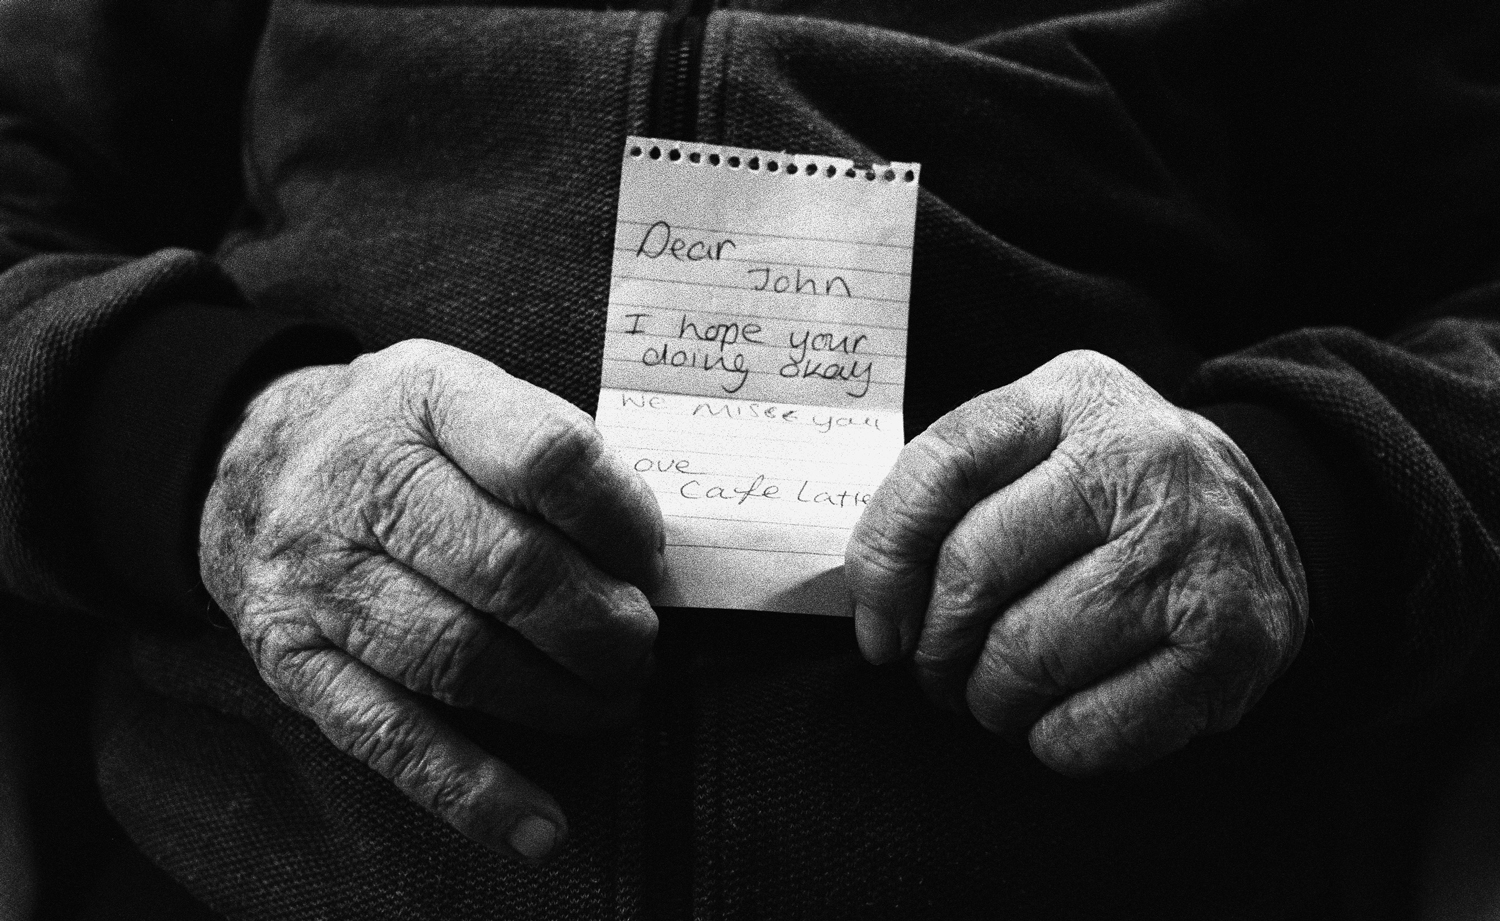 Dear
John
I hope your
doing okay
we misse you
ove
Cafe Latte